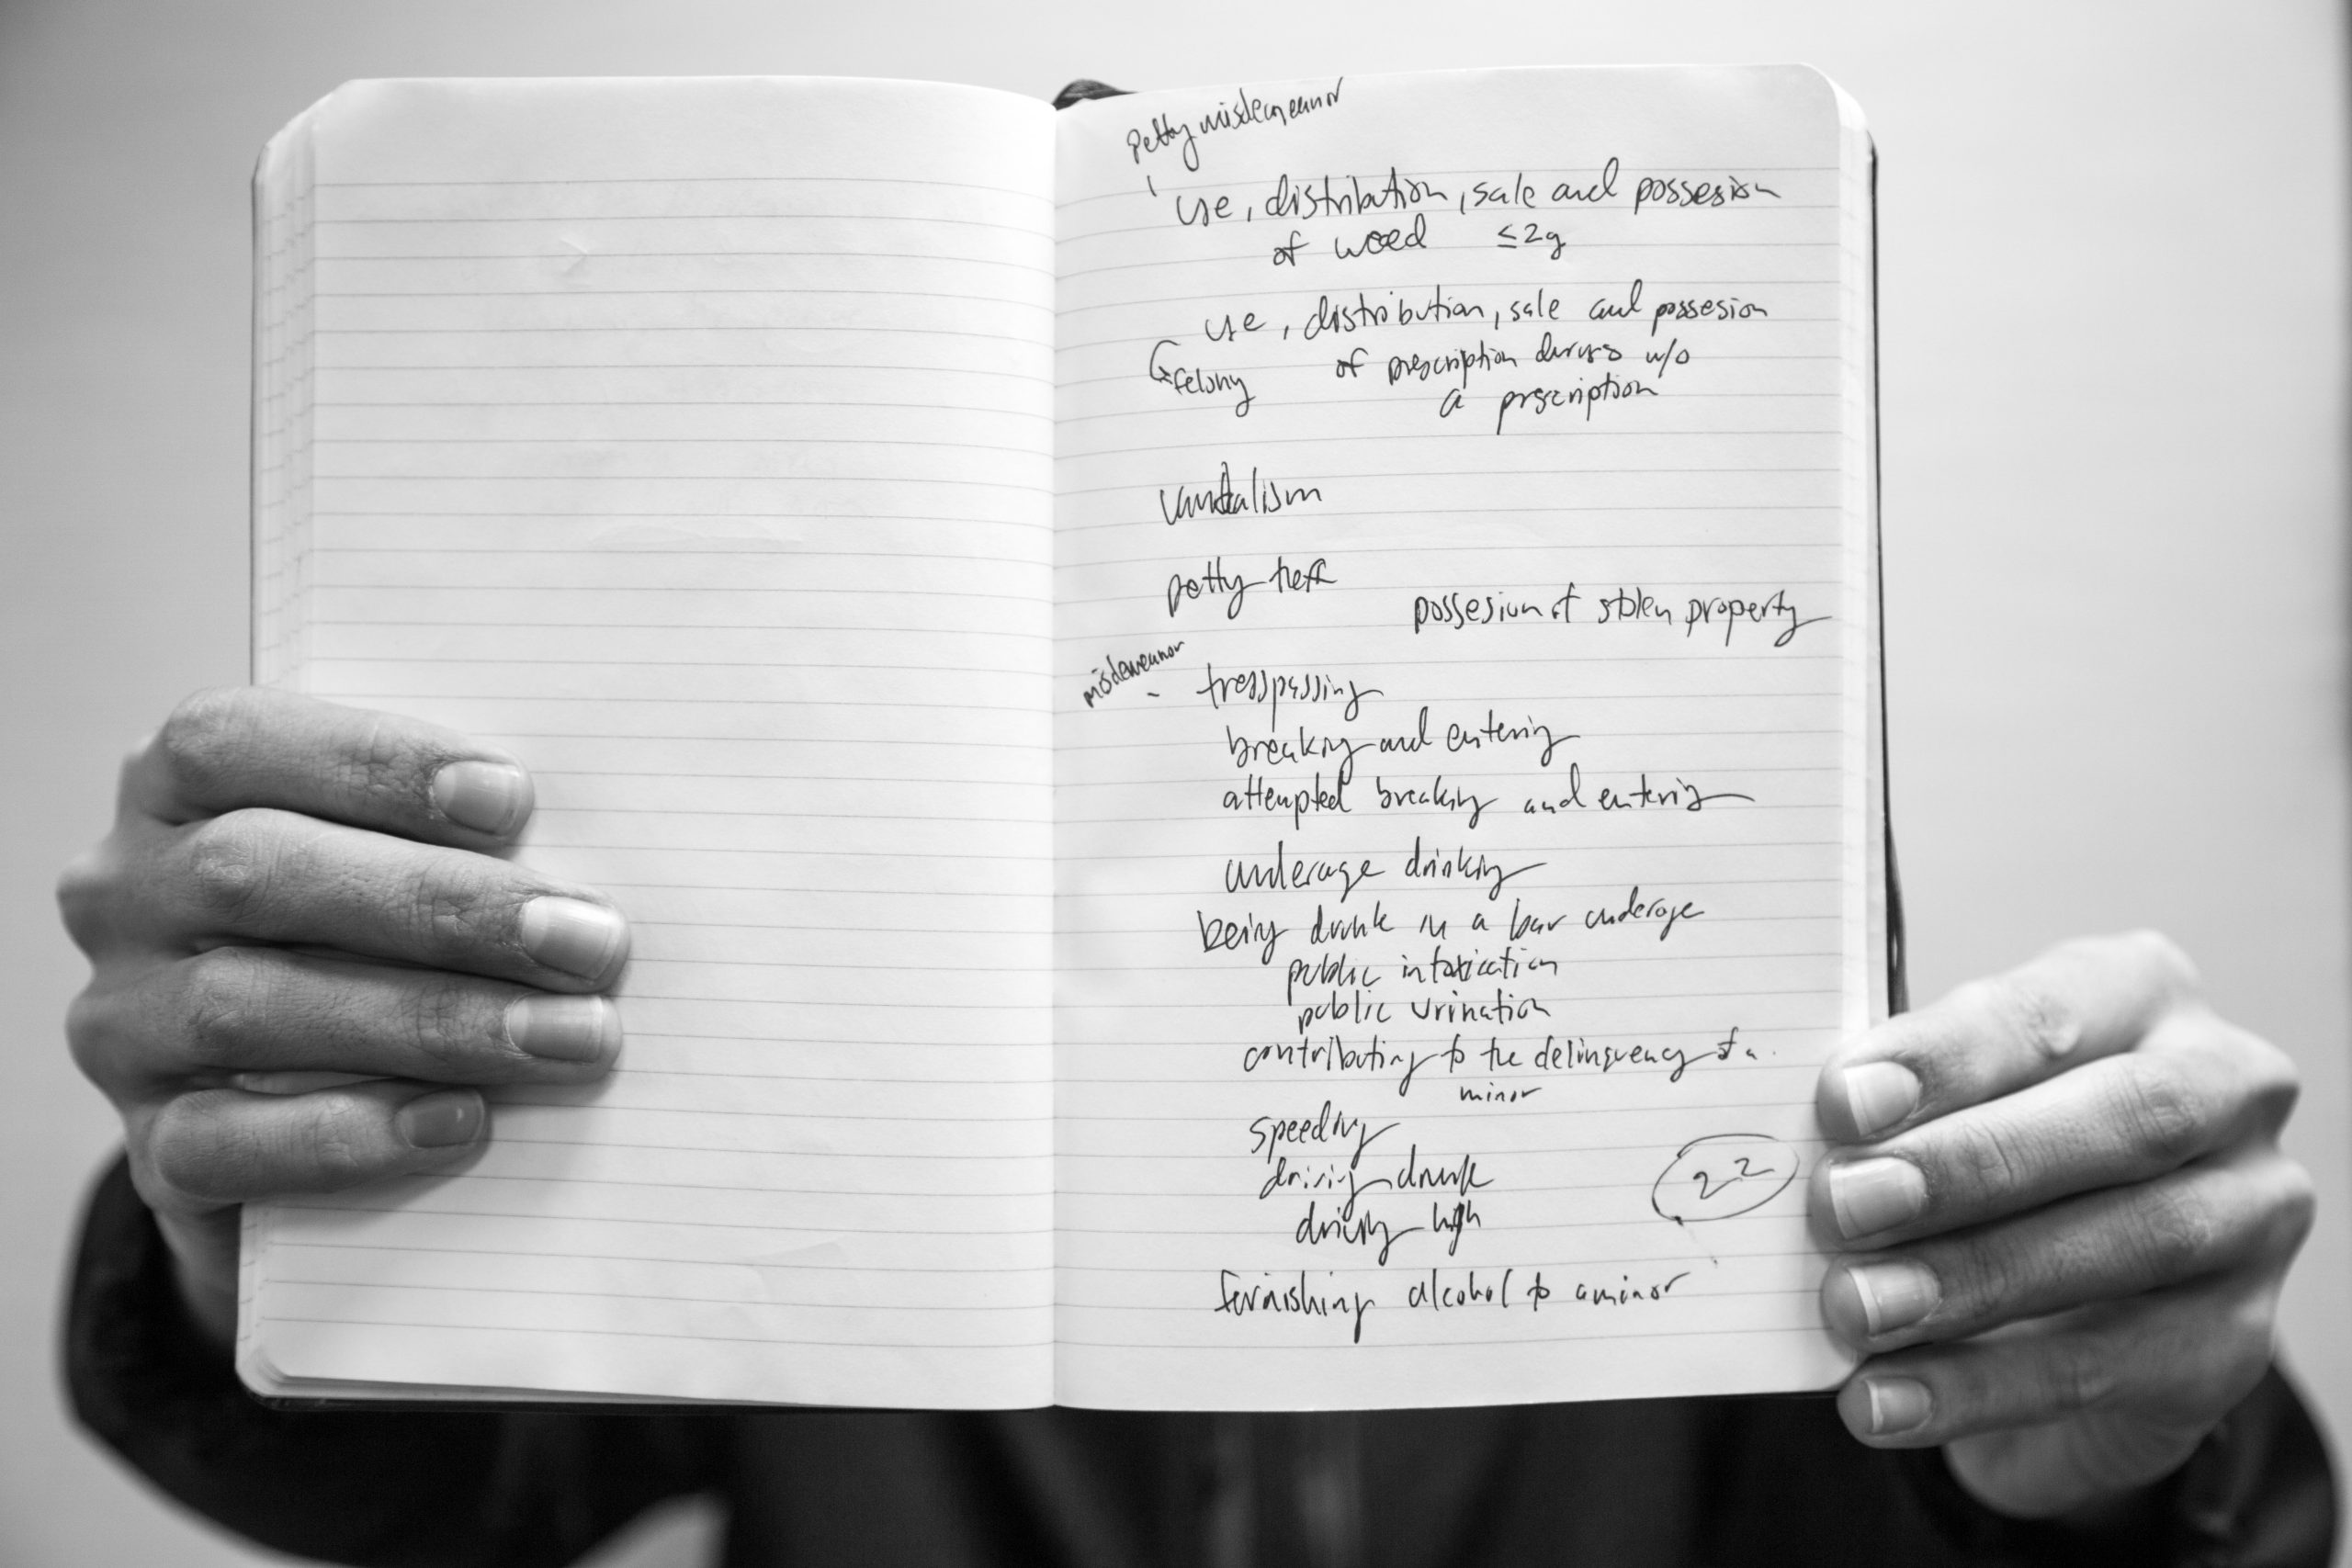 petty misdemeanor
use, distribution, sale and possesion
of weed ≤2g
use, distribution, sale and possesion
felony of prescription drugs w/o
a prscription
vandalism
petty theft
possesion of stolen property
misdemeanor
tresspassing
breaking and entering
attempted breaking and entering
underage drinking
being drunk in a bar underage
public intoxication
public urination
contributing to the delinquency of a
minor
speeding
driving drunk
22
driving high
furnishing alcohol to a minor